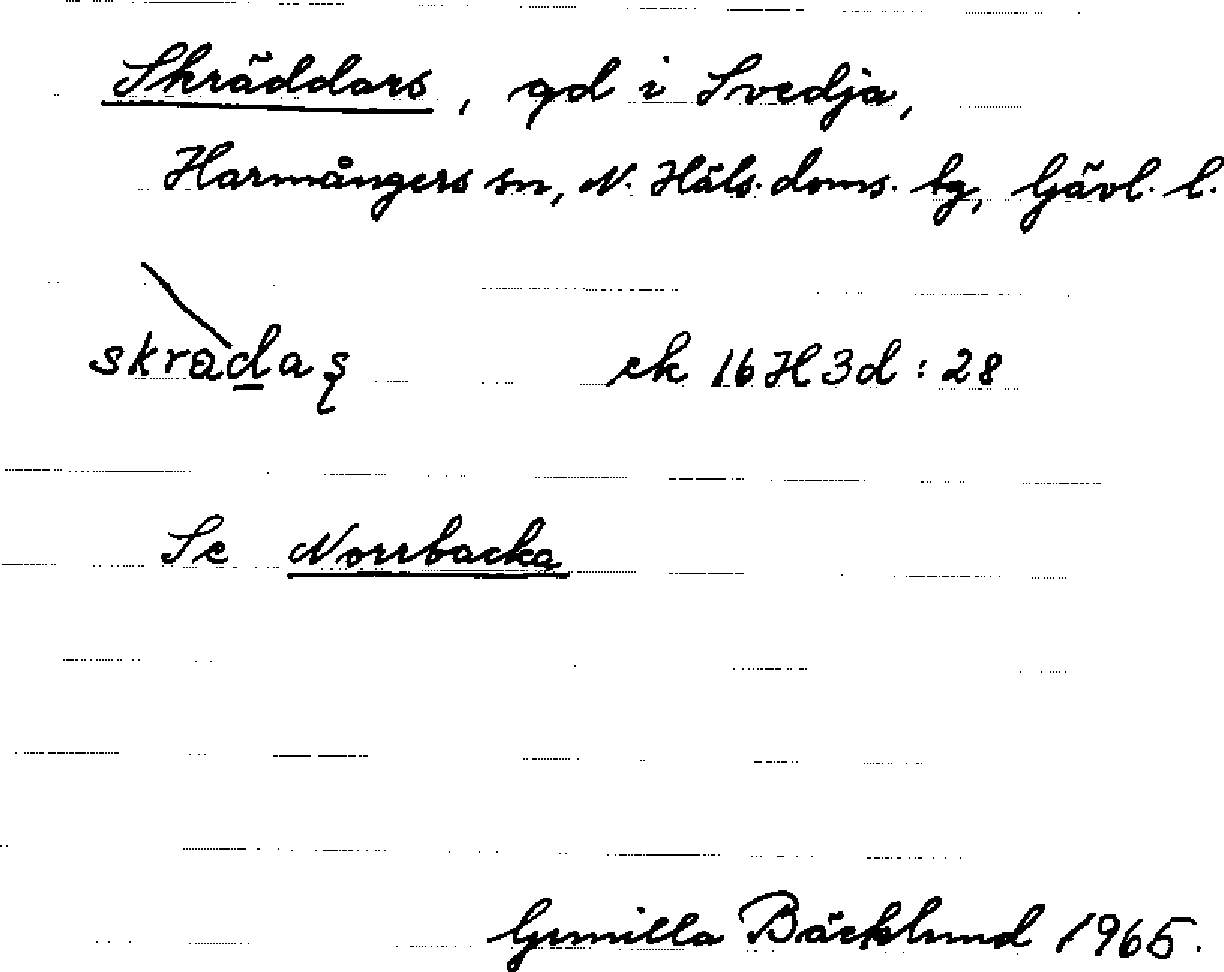 Skräddars, gd i Svedja,
Harmångers sn, N. Häls. doms. tg, Gävl. l.
skradaş ek 16H3d:28
Se Norrbacka
Gunilla Bäcklund 1965.